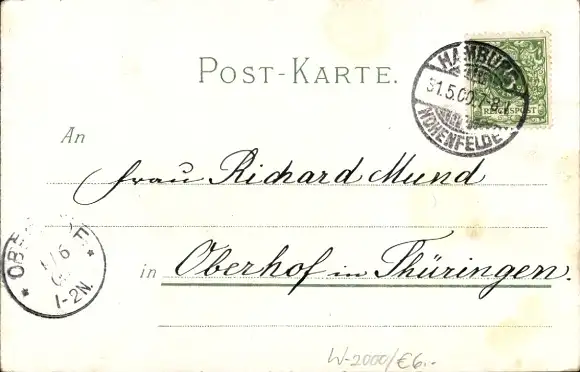 POST-KARTE.
HAMBURG
31.5.00. 7-8 V
HOHENFELDE
REICHSPOST
An
Frau Richard Mund
in Oberhof in Thüringen.
1/6
1-2N.
W-2000/€6.-